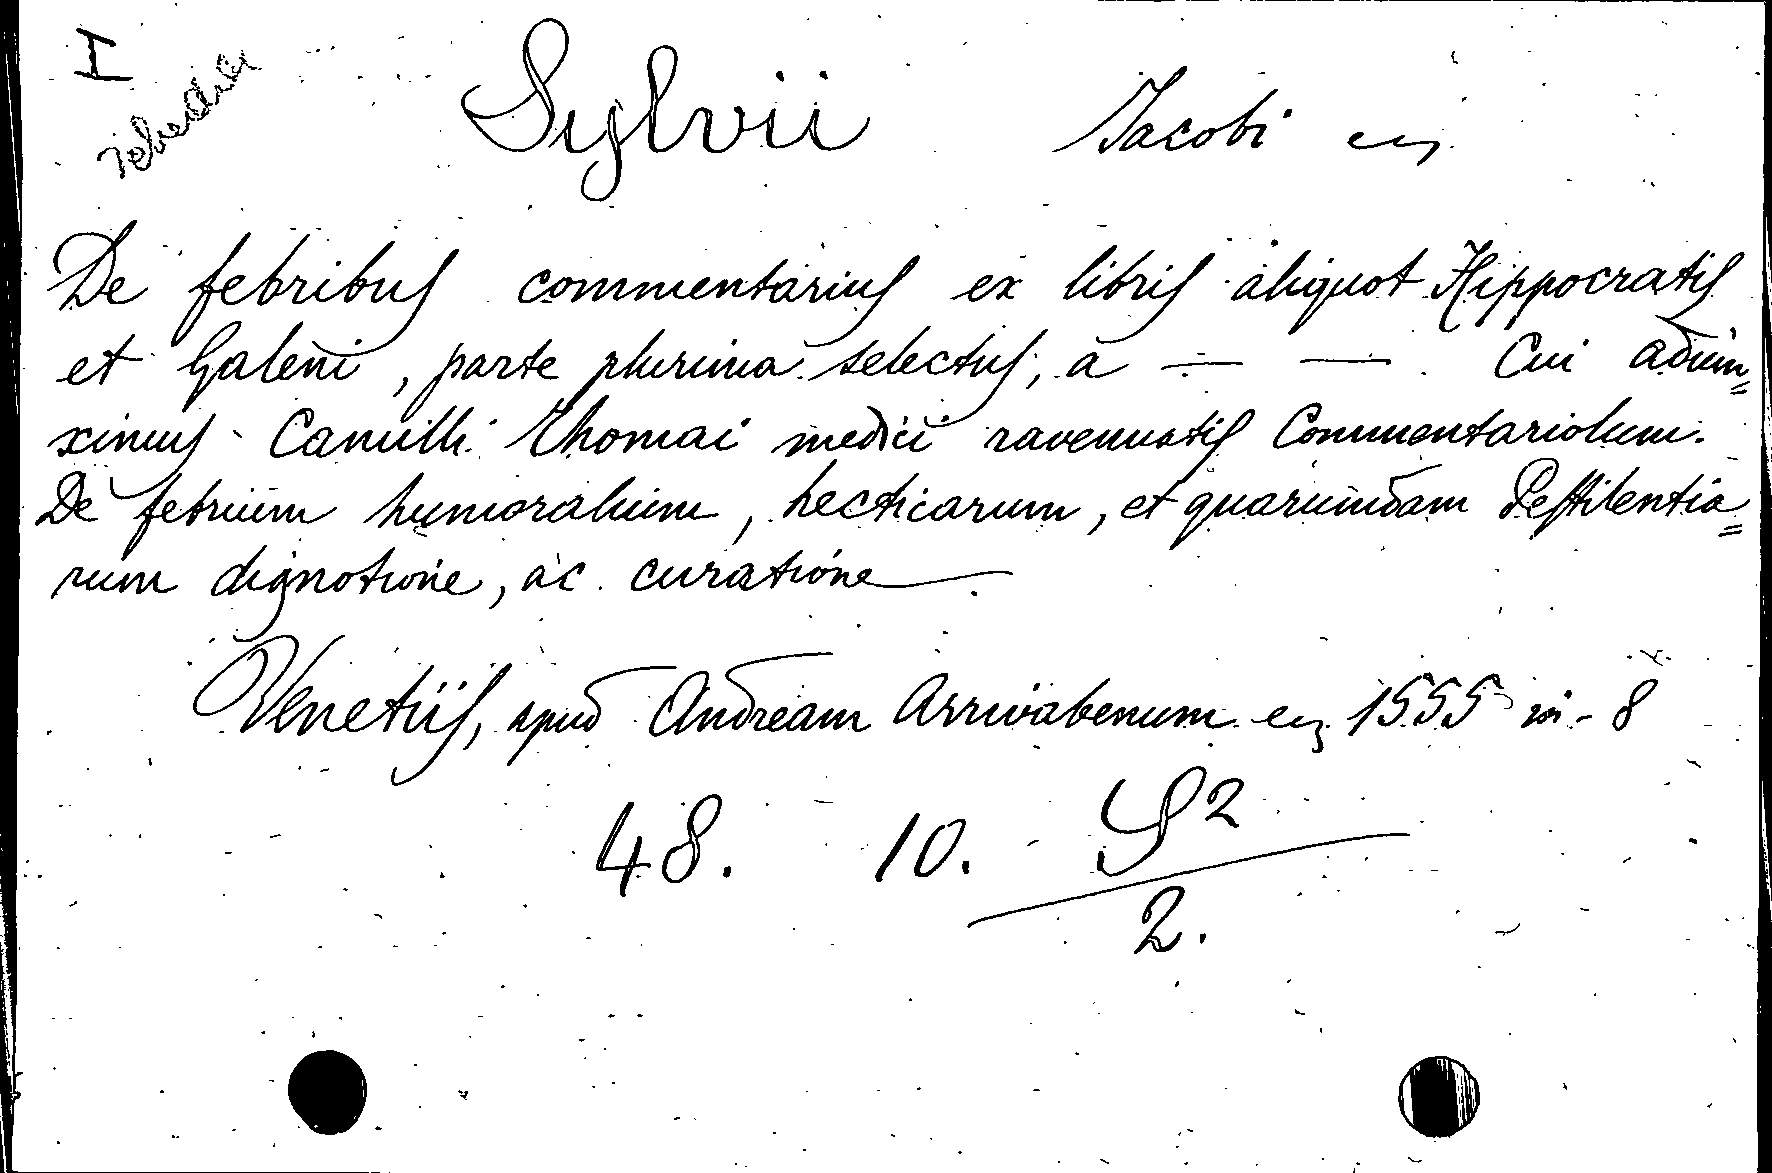 I
Sylvii Jacobi
De febribus commentarius ex libris aliquot Hippocratis
et Galeni, parte plurima selectus, a — — . Cui adiun=
ximus Camilli Thomai medici ravennatis Commentariolum.
De febrium humoralium, hecticarum, et quarumdam Pestilentia=
rum dignotione, ac curatione.
Venetiis, apud Andream Arrivabenum 1555 in-8
48. 10. S2
2.